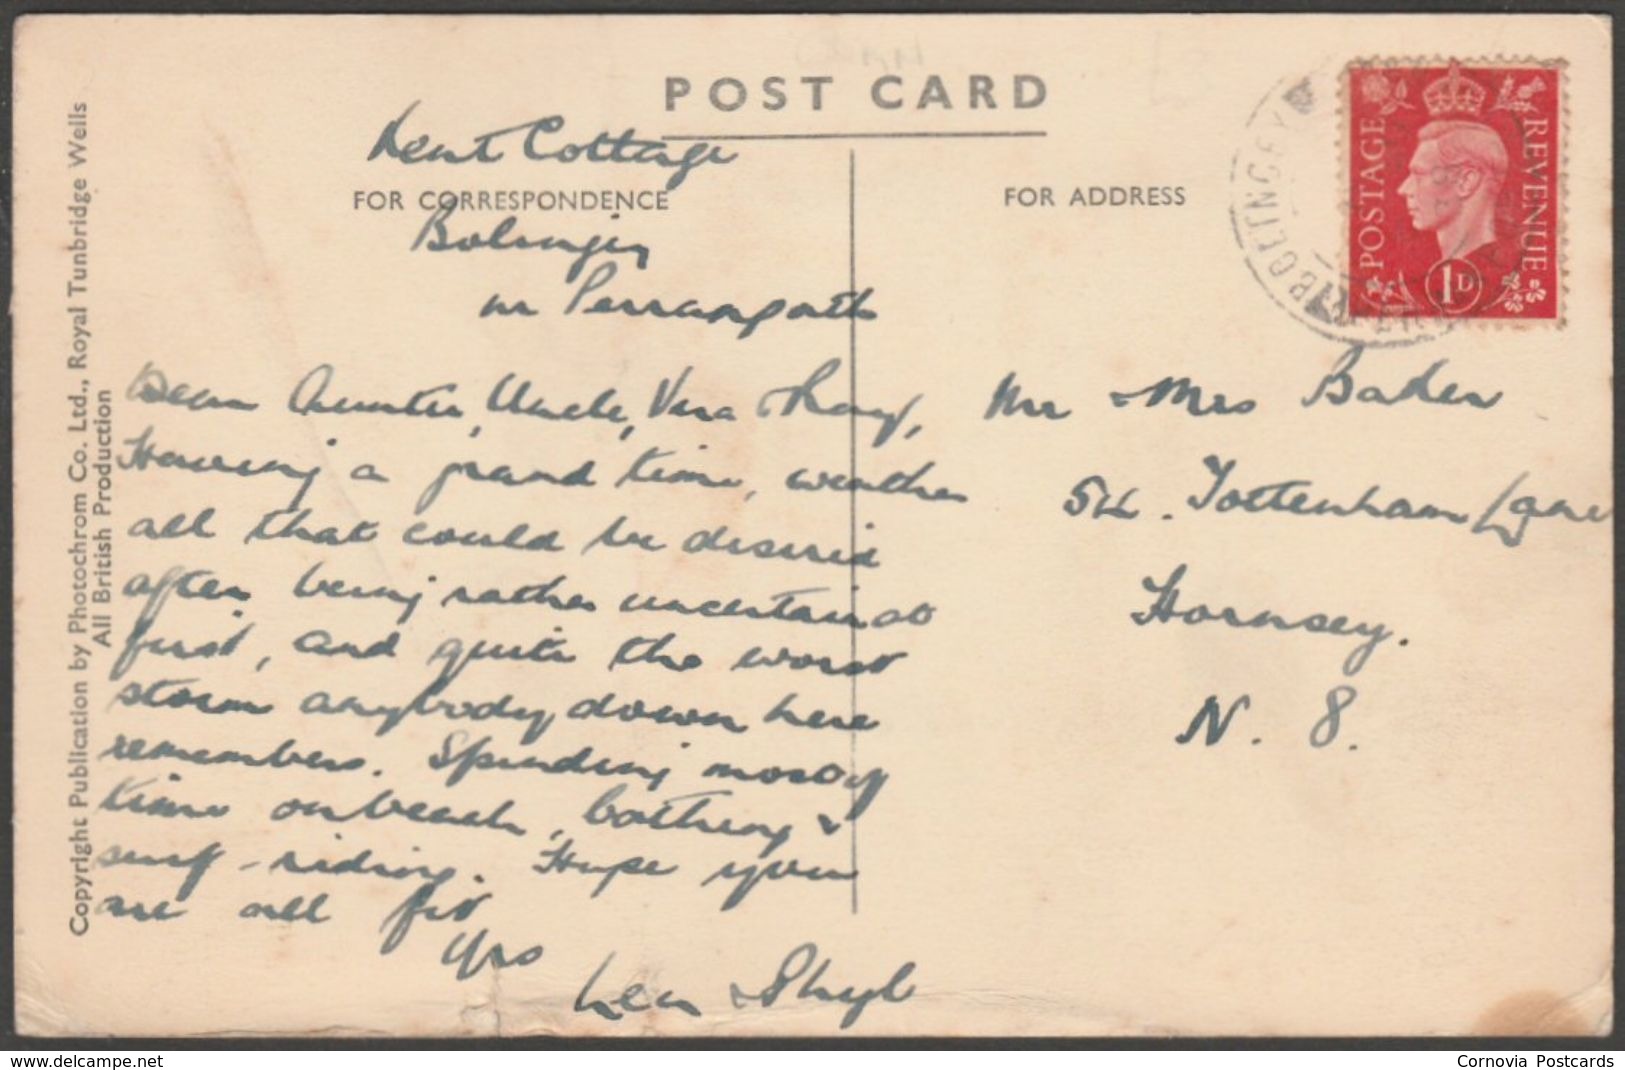 POST CARD
Kent Cottage
FOR CORRESPONDENCE
Bolingey
nr Perranporth
Dear Auntie, Uncle, Vera & Ray,
Having a grand time, weather
all that could be desired
after being rather uncertain at
first, and quite the worst
storm anybody down here
remembers. Spending most of
time on beach, bathing &
surf-riding. Hope you
are all fit
Yrs
Len & Sheyl
FOR ADDRESS
Mr & Mrs Baker
54. Tottenham Lane
Hornsey.
N. 8.
POSTAGE
REVENUE
1D
BOLINGEY
Copyright Publication by Photochrom Co. Ltd., Royal Tunbridge Wells
All British Production
www.delcampe.net
Cornovia Postcards